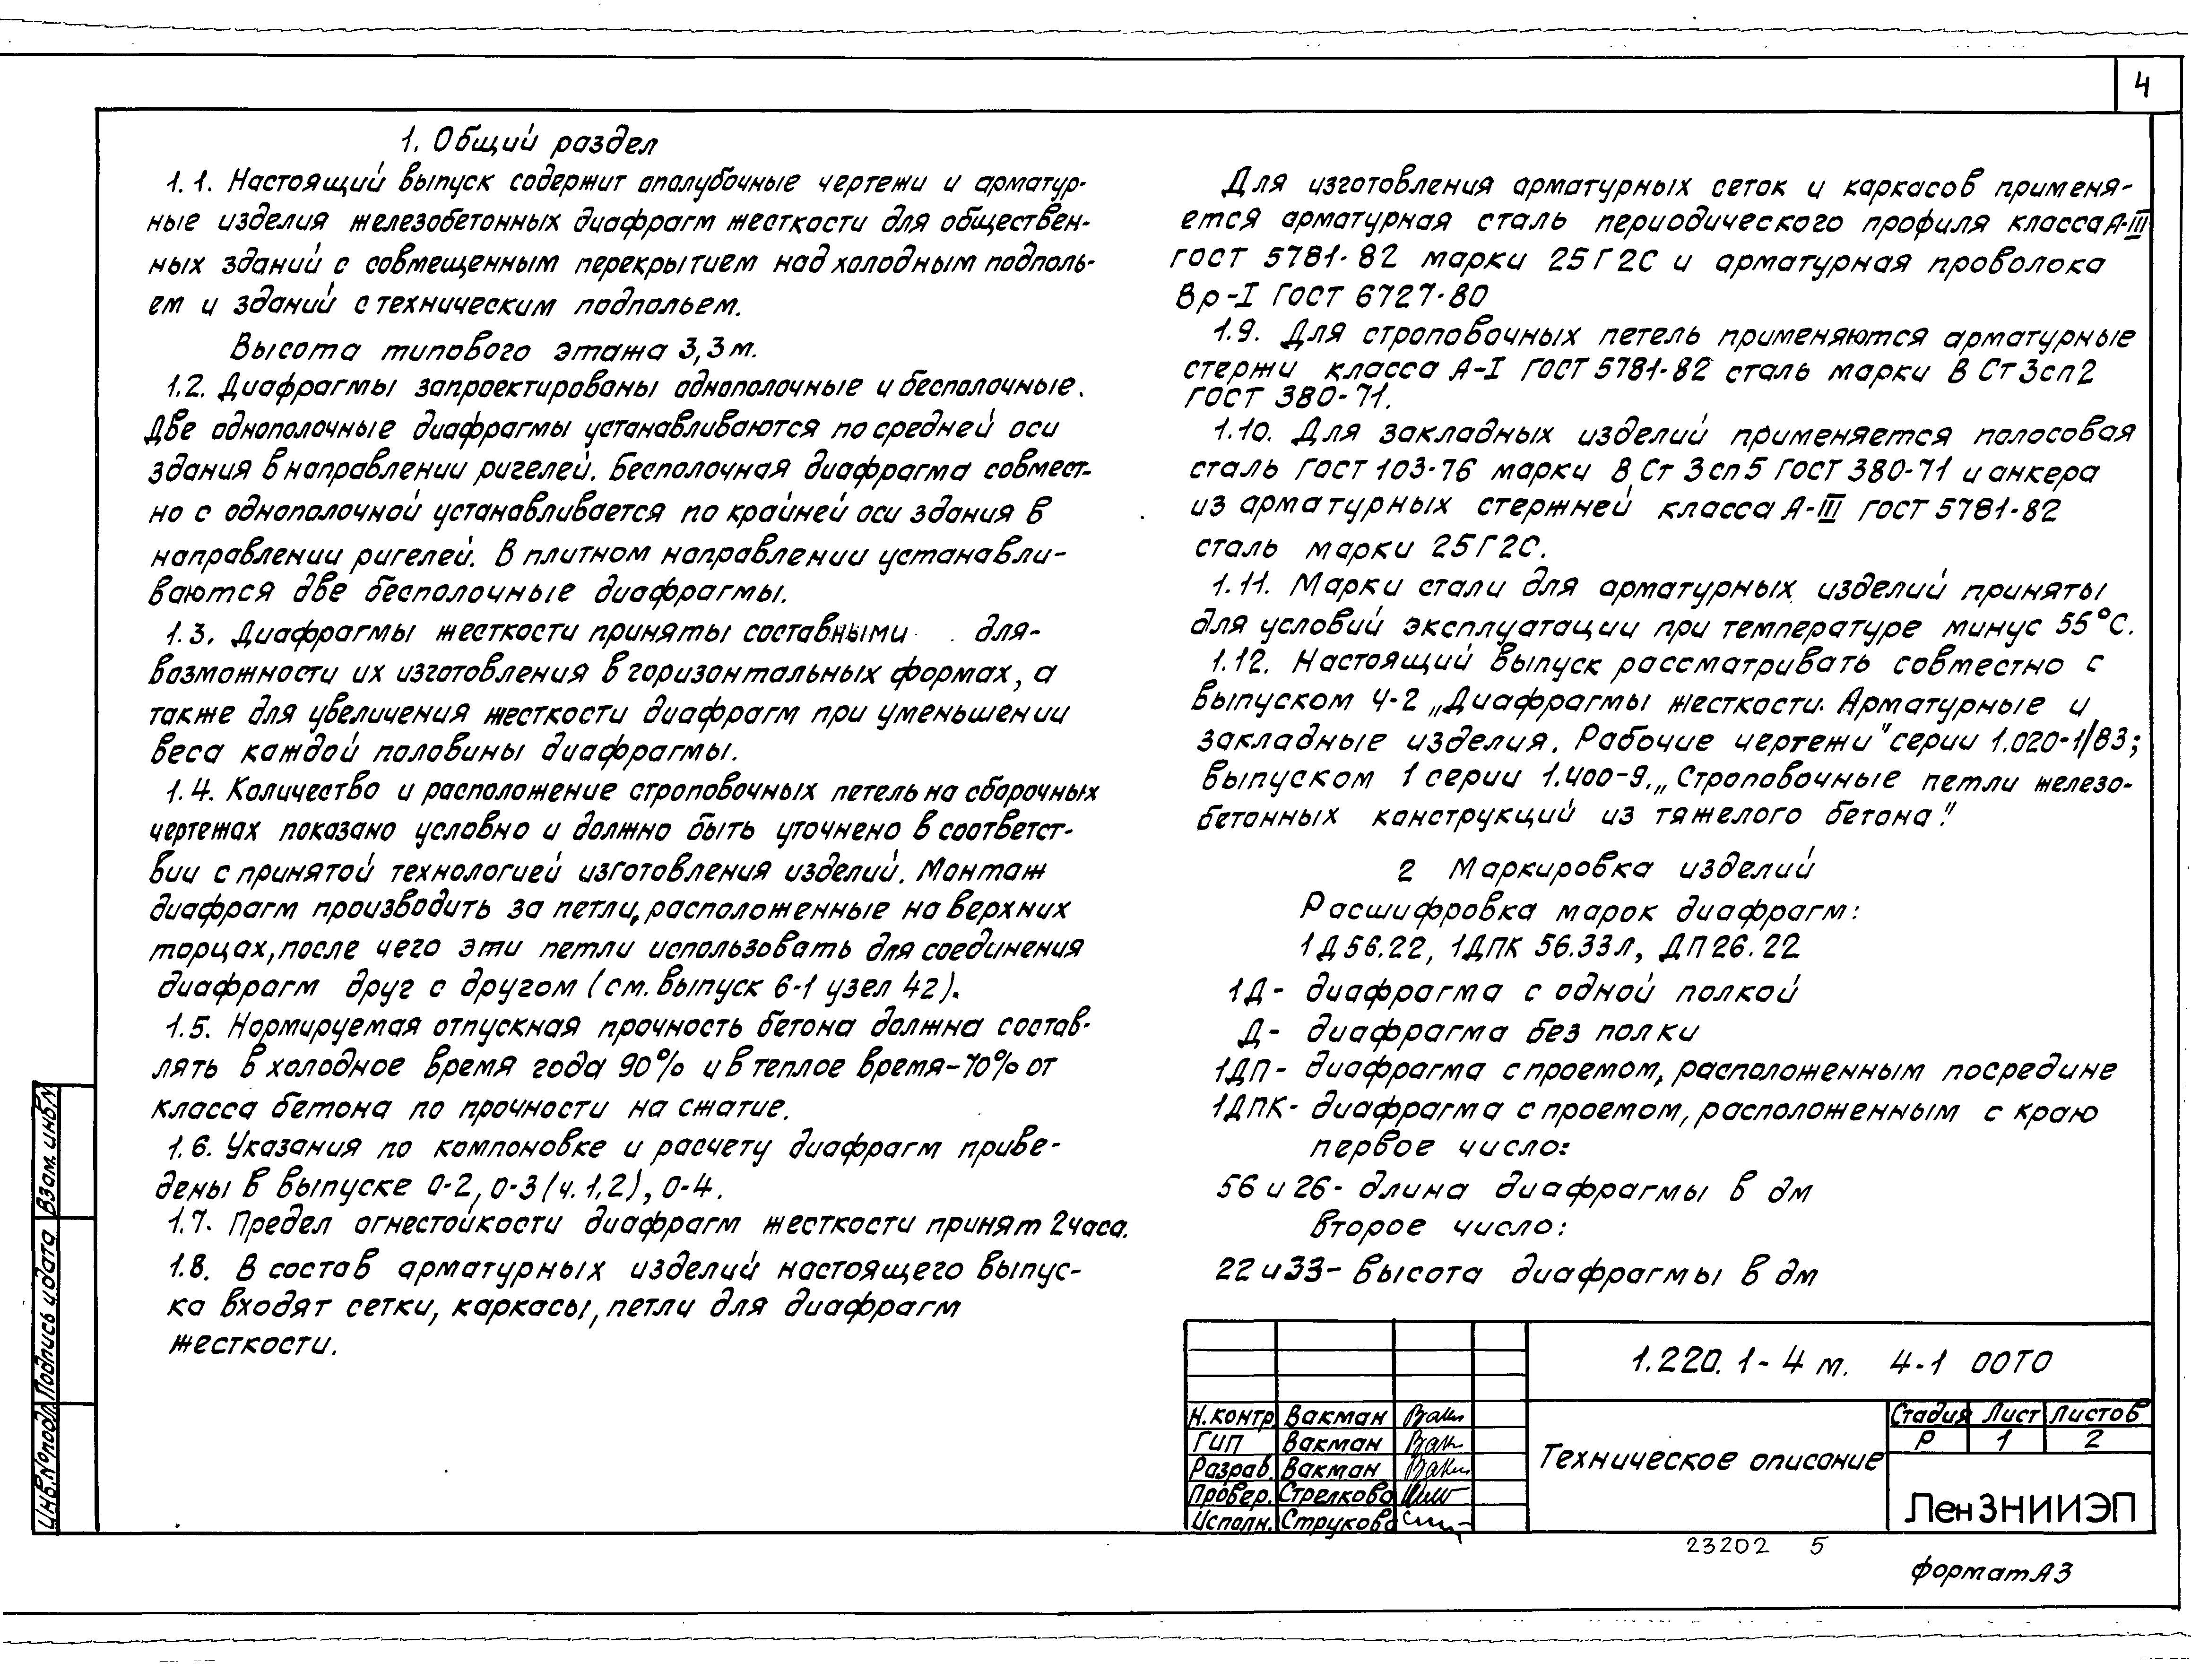 4
1. Общий раздел
1.1. Настоящий выпуск содержит опалубочные чертежи и арматур-
ные изделия железобетонных диафрагм жесткости для обществен-
ных зданий с совмещенным перекрытием над холодным подполь-
ем и зданий с техническим подпольем.
Высота типового этажа 3,3м.
1.2. Диафрагмы запроектированы однополочные и бесполочные.
Две однополочные диафрагмы устанавливаются по средней оси
здания в направлении ригелей. Бесполочная диафрагма совмест-
но с однополочной устанавливается по крайней оси здания в
направлении ригелей. В плитном направлении устанавли-
ваются две бесполочные диафрагмы.
1.3. Диафрагмы жесткости приняты составными для-
возможности их изготовления в горизонтальных формах, а
также для увеличения жесткости диафрагм при уменьшении
веса каждой половины диафрагмы.
1.4. Количество и расположение строповочных петель на сборочных
чертежах показано условно и должно быть уточнено в соответст-
вии с принятой технологией изготовления изделий. Монтаж
диафрагм производить за петли, расположенные на верхних
торцах, после чего эти петли использовать для соединения
диафрагм друг с другом (см. выпуск 6-1 узел 42).
1.5. Нормируемая отпускная прочность бетона должна состав-
лять в холодное время года 90% и в теплое время-70% от
класса бетона по прочности на сжатие.
1.6. Указания по компоновке и расчету диафрагм приве-
дены в выпуске 0-2, 0-3 (ч. 1,2), 0-4.
1.7. Предел огнестойкости диафрагм жесткости принят 2 часа.
1.8. В состав арматурных изделий настоящего выпус-
ка входят сетки, каркасы, петли для диафрагм
жесткости.
Для изготовления арматурных сеток и каркасов применя-
ется арматурная сталь периодического профиля класса А-III
ГОСТ 5781-82 марки 25Г2С и арматурная проволока
Вр-I ГОСТ 6727-80
1.9. Для строповочных петель применяются арматурные
стержи класса А-I ГОСТ 5781-82 сталь марки В Ст 3сп2
ГОСТ 380-71.
1.10. Для закладных изделий применяется полосовая
сталь ГОСТ 103-76 марки В Ст 3сп5 ГОСТ 380-71 и анкера
из арматурных стержней класса А-III ГОСТ 5781-82
сталь марки 25Г2С.
1.11. Марки стали для арматурных изделий приняты
для условий эксплуатации при температуре минус 55°С.
1.12. Настоящий выпуск рассматривать совместно с
выпуском 4-2 „Диафрагмы жесткости. Арматурные и
закладные изделия. Рабочие чертежи" серии 1.020-1/83;
выпуском 1 серии 1.400-9. „Строповочные петли железо-
бетонных конструкций из тяжелого бетона".
2 Маркировка изделий
Расшифровка марок диафрагм:
1Д56.22, 1ДПК 56.33л, ДП26.22
1Д- диафрагма с одной полкой
Д- диафрагма без полки
1ДП- диафрагма с проемом, расположенным посредине
1ДПК- диафрагма с проемом, расположенным с краю
первое число:
56 и 26- длина диафрагмы в дм
второе число:
22 и 33- высота диафрагмы в дм
1.220.1-4м. 4-1 00ТО
Н.контр. Вакман
ГИП Вакман
Разраб. Вакман
Провер. Стрелкова
Исполн. Струкова
Техническое описание
Стадия Лист Листов
Р 1 2
ЛенЗНИИЭП
23202 5
формат А3
Взам. инв.№
Подпись и дата
Инв.№ подл.